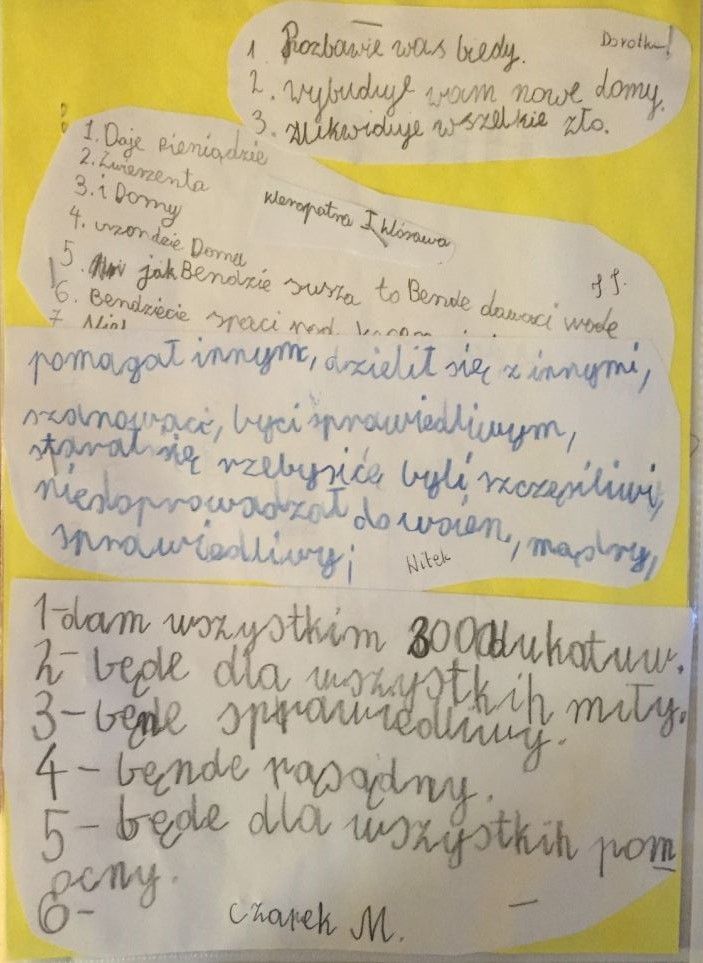 Dorotka!
1. Rozbawie was biedy.
2. wybuduje wam nowe domy.
3. zlikwiduje wszelkie zło.
1. Daje pieniądzie
2. Zwieszenta
3. i Domy
kleropatra I kłósawa
4. urzondzie Doma
5. jak Bendzie susza to Bende dawaci wode
J J.
6. Bendziecie spaci nod
7.
pomagał innym, dzielił się z innymi,
szanowaci, byci sprawiedliwym,
starał się rzebysice byli szczęsiliwi,
niedoprowadzał do woien, mądry,
sprawiedliwy;
Witek
1-dam wszystkim 3000dukatuw.
2- będe dla wszystkih miły.
3- bęnde sprawiedliwy.
4- bęnde rąsądny.
5- będe dla wszystkih pom
ocny.
6-
Czarek M.